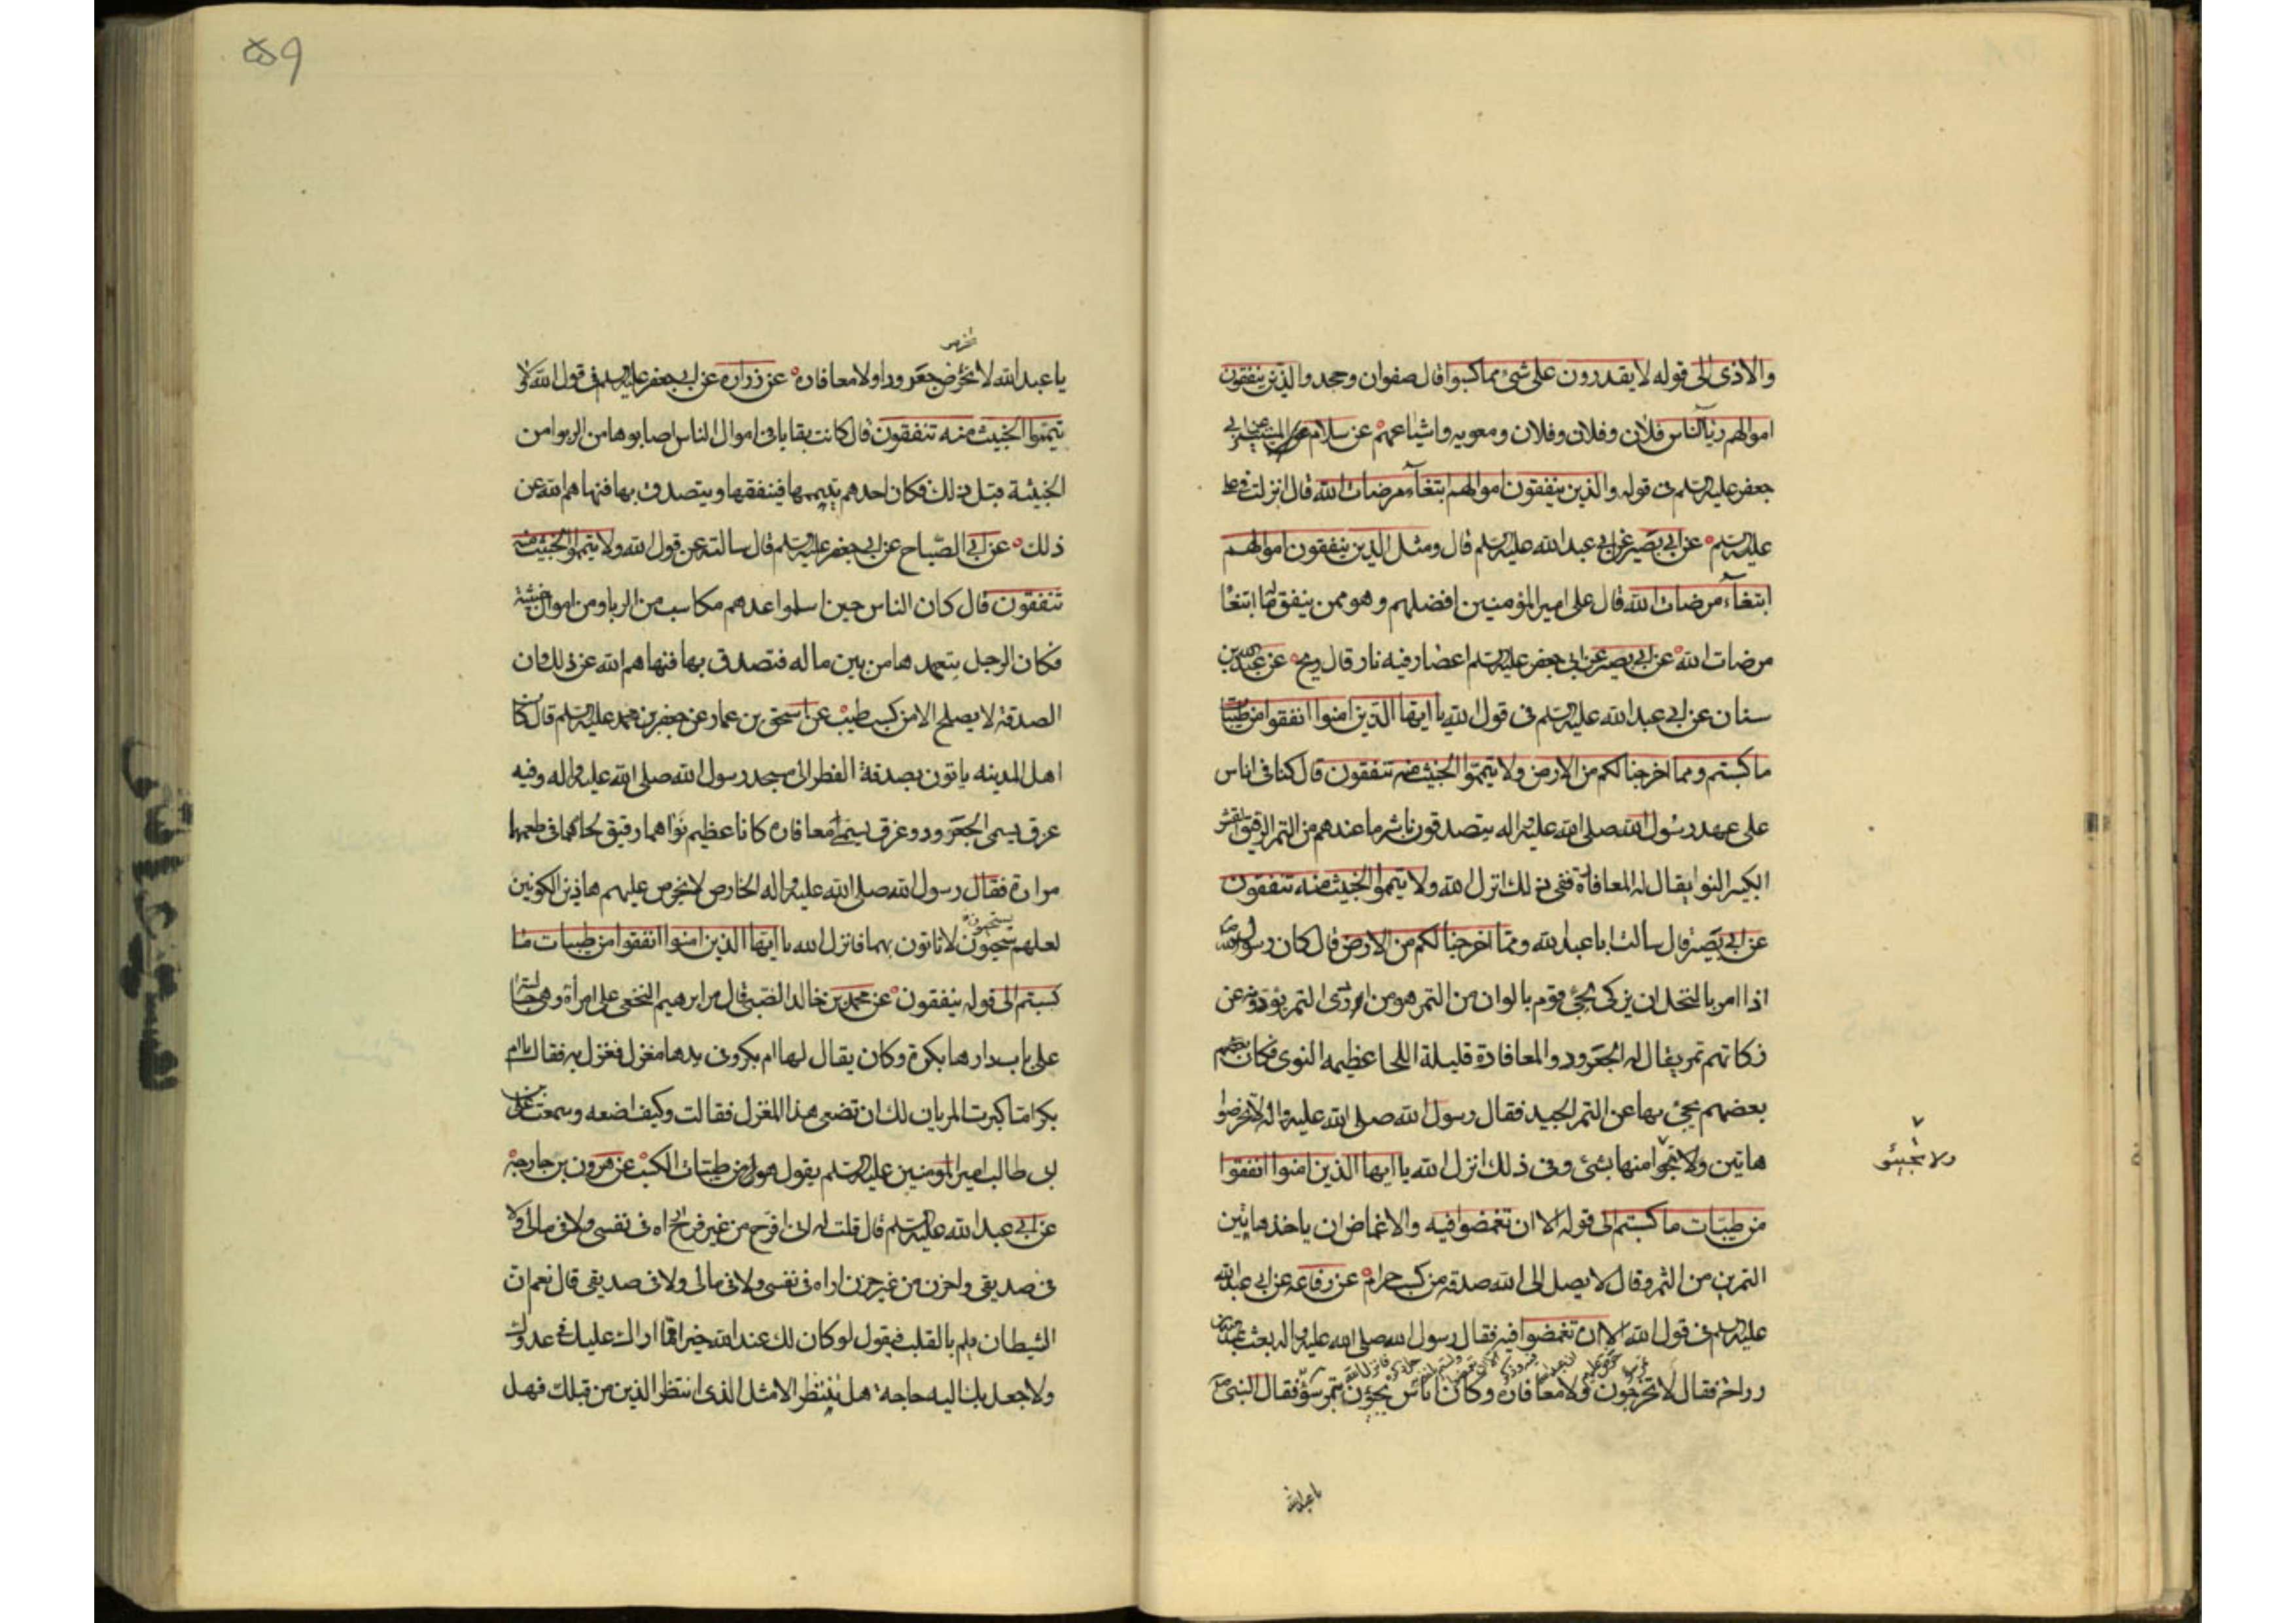 والاذى الى قوله لا يقدرون على شئ مما كسبوا قال صفوان وجحد والذين ينفقون
اموالهم رئآ الناس فلان وفلان وفلان ومعويه واشياعهم عن سلام
جعفر عليه السلم فى قوله والذين ينفقون اموالهم ابتغآء مرضات الله قال انزلت فى على
عليه السلم عن ابى بصير عن ابى عبد الله عليه السلم قال ومثل الذين ينفقون اموالهم
ابتغآء مرضات الله قال على امير المؤمنين افضلهم وهو ممن ينفق ماله ابتغآ
مرضات الله عن ابى بصير عن ابى جعفر عليه السلم اعصار فيه نار قال ريح عن عبد الله بن
سنان عن ابى عبد الله عليه السلم فى قول الله يا ايها الذين امنوا انفقوا من طيبات
ما كسبتم ومما اخرجنا لكم من الارض ولا تيمموا الخبيث منه تنفقون قال كنا فى اناس
على عهد رسول الله صلى الله عليه واله يتصدقون باشر ما عندهم من التمر الرقيق القشر
الكبير النوا يقال له المعافارة ففى ذلك انزل الله ولا تيمموا الخبيث منه تنفقون
عن ابى بصير قال سالت ابا عبد الله ومما اخرجنا لكم من الارض قال كان رسول الله
اذا امر بالنخل ان يزكى يجئ قوم بالوان من التمر هو من اردى التمر يؤدونه عن
زكاتهم تمر يقال له الجعرور والمعافارة قليلة اللحا عظيمه النوى فكان بعضهم
بعضهم يجئ بها عن التمر الجيد فقال رسول الله صلى الله عليه واله لا تخرصوا
هاتين ولا تجوا منها بشئ وفى ذلك انزل الله يا ايها الذين امنوا انفقوا
ولا تجيئو
من طيبات ما كسبتم الى قوله الا ان تغمضوا فيه والاغماض ان ياخذ هاتين
التمرين من التمر وقال لا يصل الى الله صدقه من كسب حرام عن رفاعه عن ابى عبد الله
عليه السلم فى قول الله الا ان تغمضوا فيه فقال رسول الله صلى الله عليه واله بعث عبد الله بن
رواحه فقال لا تخرصون ولا معافاره وكان اناس يجيؤن بتمر سوء فقال النبى
يا عبد الله
۵۹
يا عبد الله لا تخرص جعرورا ولا معافاره عن زراره عن ابى جعفر عليه السلم فى قول الله ولا
تيمموا الخبيث منه تنفقون قال كانت بقايا فى اموال الناس اصابوها من الربوا من
الخبيثة قبل ذلك فكان احدهم يتيممها فينفقها ويتصدق بها فنهاهم الله عن
ذلك عن ابى الصباح عن ابى جعفر عليه السلم قال سالته عن قول الله ولا تيمموا الخبيث منه
تنفقون قال كان الناس حين اسلموا عندهم مكاسب من الربا ومن اموال خبيثة
فكان الرجل يتعمدها من بين ماله فتصدق بها فنهاهم الله عن ذلك وان
الصدقة لا يصلح الا من كسب طيب عن اسحق بن عمار عن جعفر بن محمد عليه السلم قال كان
اهل المدينه ياتون بصدقة الفطر الى مسجد رسول الله صلى الله عليه واله وفيه
عرق يسمى الجعرور وعرق يسمى معافاره كانا عظيم نواهما رقيق لحاهما فى طعمهما
مرارة فقال رسول الله صلى الله عليه واله للخارص لا تخرص عليهم هاذين اللونين
لعلهم يستحيون لا ياتون بهما فانزل الله يا ايها الذين امنوا انفقوا من طيبات ما
كسبتم الى قوله ينفقون عن محمد بن خالد الضبى قال مر ابرهيم النخعى على امرأة وهى جالسة
على باب دارها بكرة وكان يقال لها ام بكر وفى يدها مغزل فغزل به فقال يا ام
بكر اما كبرت الم يان لك ان تضعى هذا المغزل فقالت وكيف اضعه وسمعت على بن
ابى طالب امير المؤمنين عليه السلم يقول هو من طيبات الكسب عن هرون بن خارجه
عن ابى عبد الله عليه السلم قال قلت له انى افرح من غير فرح اراه فى نفسى ولا فى مالى ولا
فى صديقى واحزن من غير حزن اراه فى نفسى ولا فى مالى ولا فى صديقى قال نعم ان
الشيطان يلم بالقلب فيقول لو كان لك عند الله خيرا ما اراك عليك عدوك
ولا جعل بك اليه حاجه هل تنتظر الا مثل الذى انتظر الذين من قبلك فهل